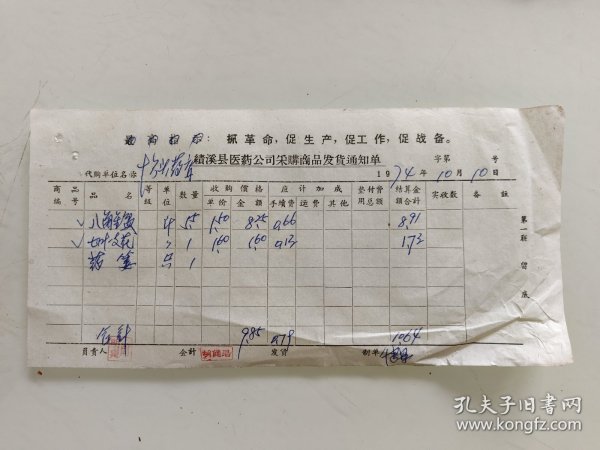 最高指示：抓革命，促生产，促工作，促战备。
绩溪县医药公司采购商品发货通知单 字第 号
代购单位名称 药库 1974年10月10日
商品编号 品名 等级 单位 数量 收购价格 单价 金额 应计加成 手续费 运费 其他 垫付费用总额 结算金额合计 实收数 备注
八角金盘 斤 5.5 1.50 8.25 0.66 8.91
七叶一枝花 〃 1 1.60 1.60 0.13 1.73
药 只 1
合计 9.85 0.79 10.64
负责人 会计 发货 制单
第一联 留底
孔夫子旧书网
www.kongfz.com